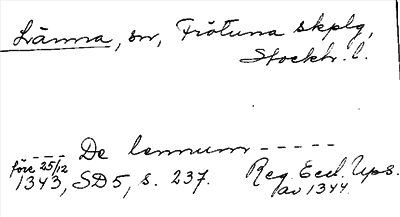 Länna, sn, Frötuna skplg,
Stockh. l.
- - - De lennum - - - - -
före 25/12
1343, SD5, s. 237. Reg. Eccl. Ups.
av 1344.